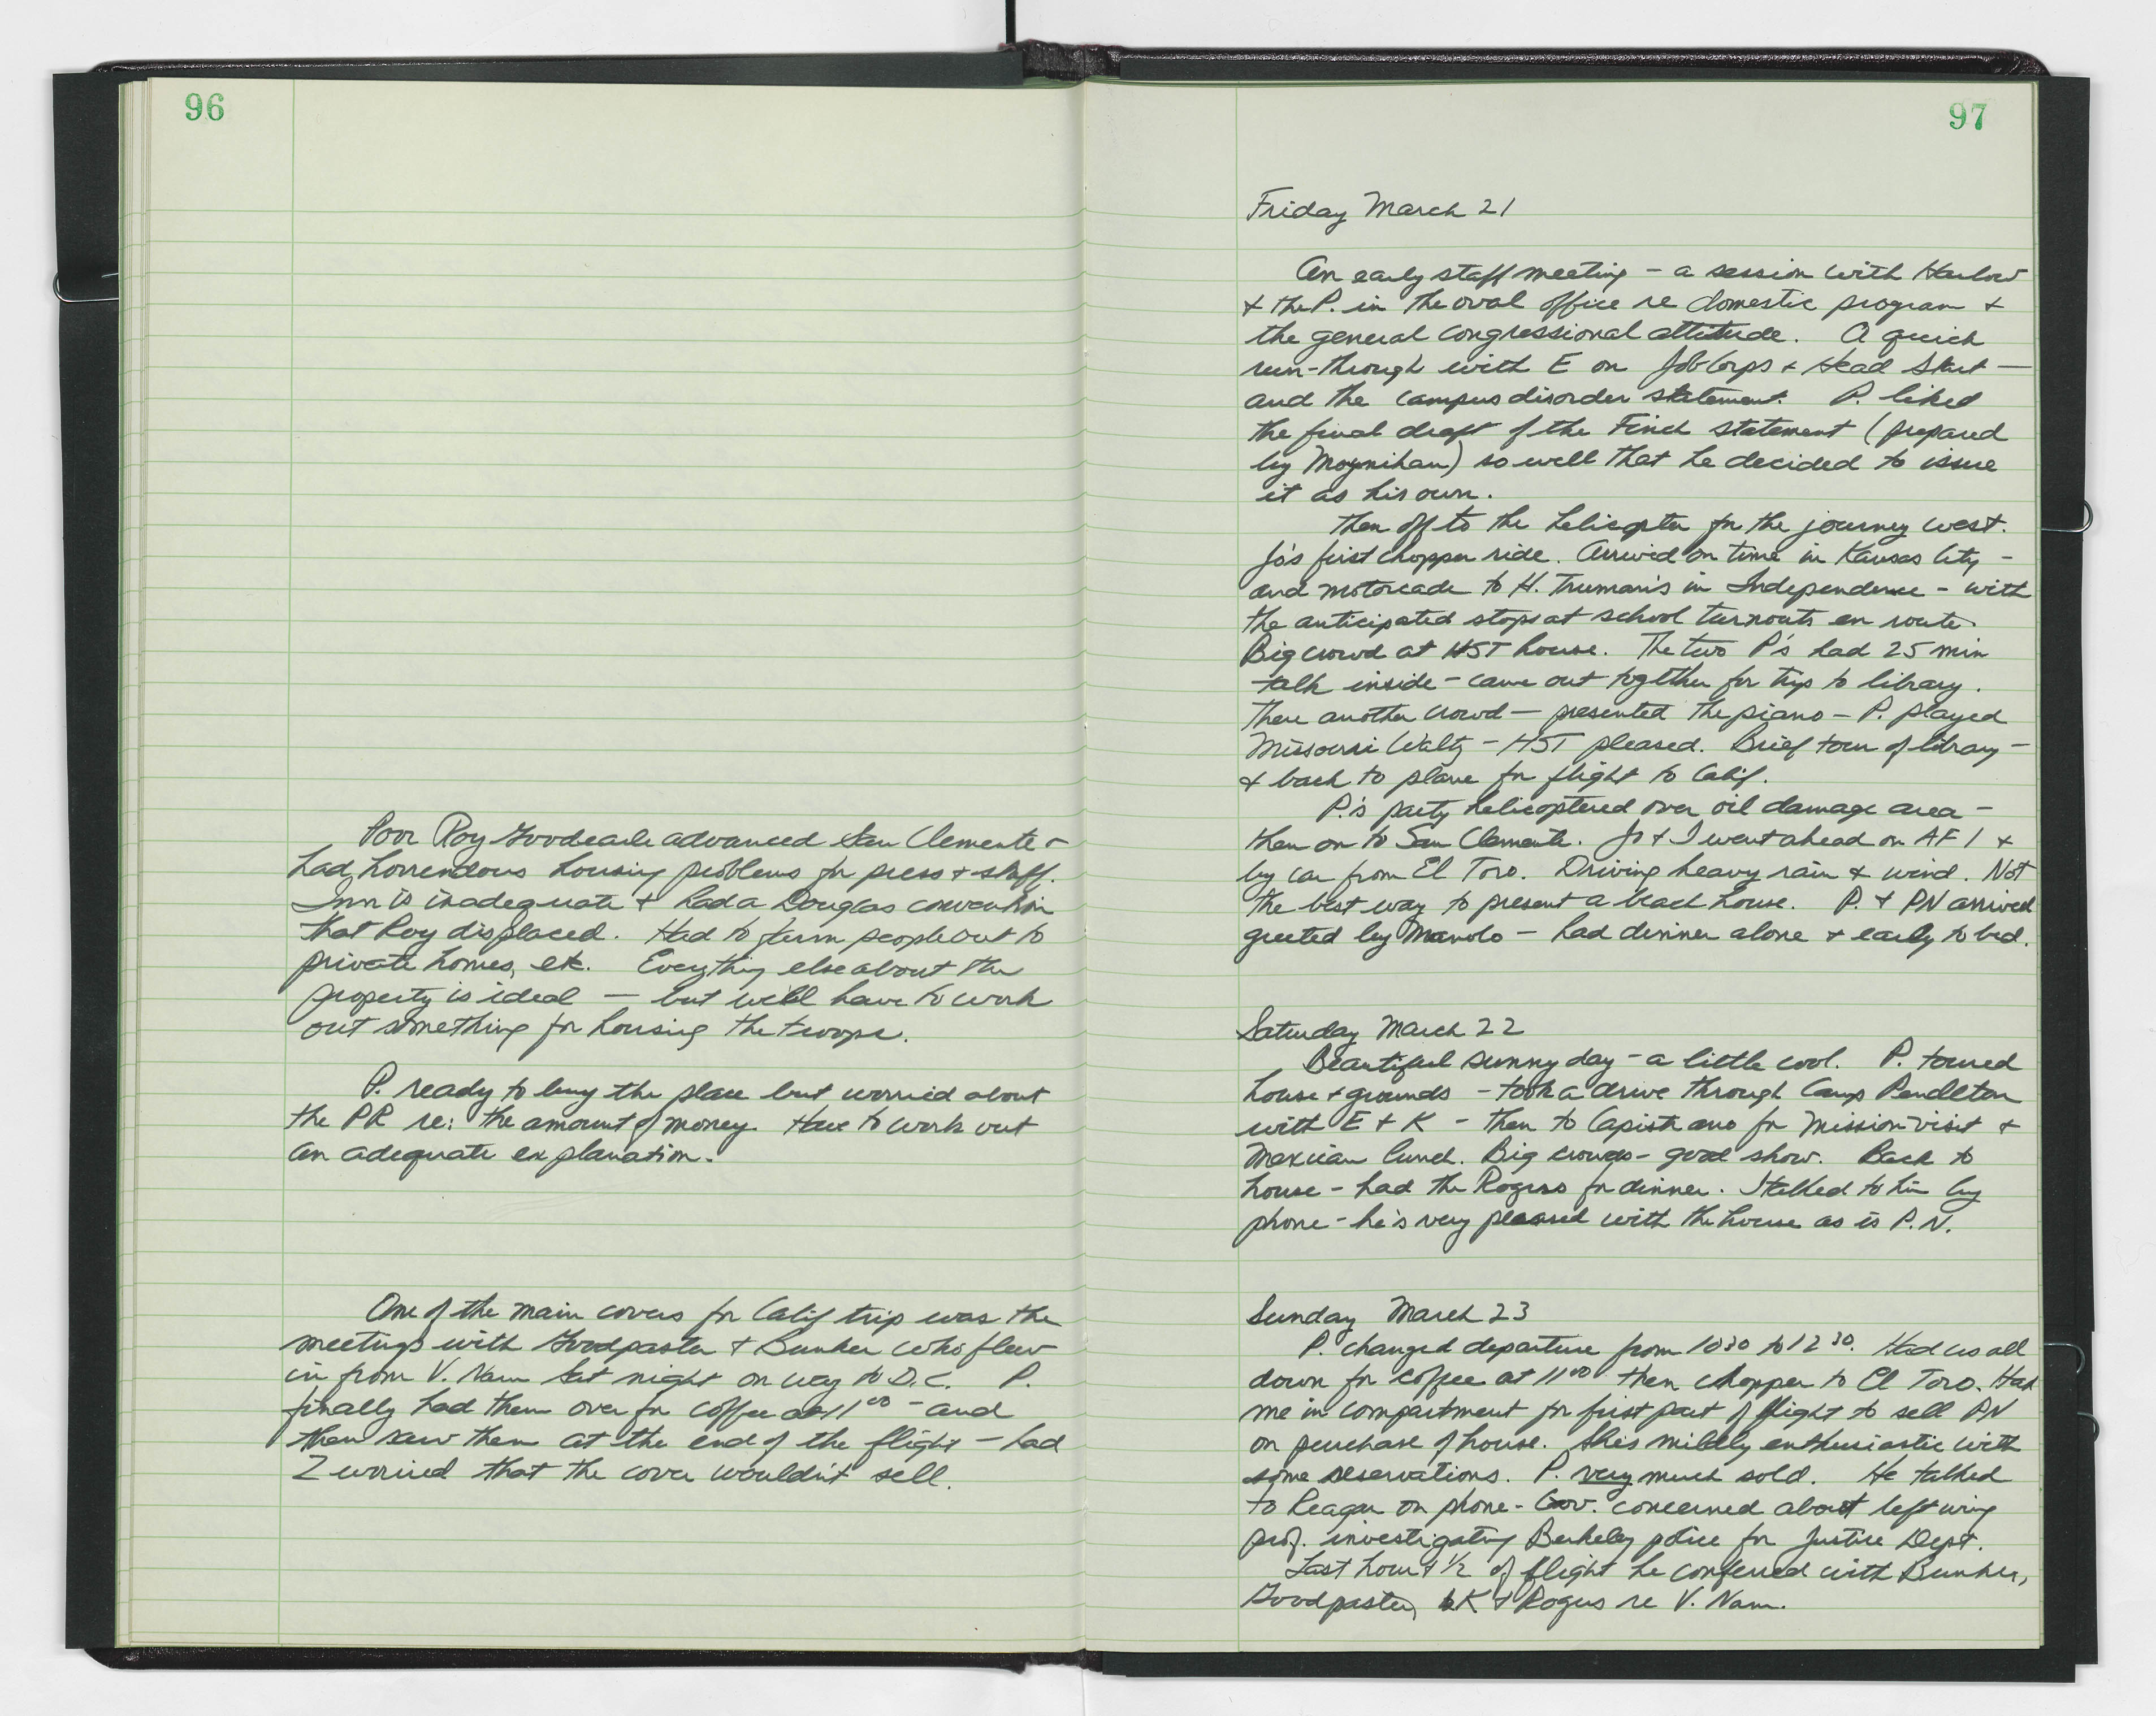 96
Poor Roy Goodearle advanced San Clemente &
had horrendous housing problems for press & staff.
Inn is inadequate & had a Douglas convention
that Roy displaced. Had to farm people out to
private homes, etc. Everything else about the
property is ideal — but we'll have to work
out something for housing the troops.
P. ready to buy the place but worried about
the PR re: the amount of money. Have to work out
an adequate explanation.
One of the main covers for Calif trip was the
meetings with Goodpaster & Bunker who flew
in from V. Nam Sat night on way to D.C. P.
finally had them over for coffee at 11 00 - and
then saw them at the end of the flight - had
Z worried that the cover wouldn't sell.
97
Friday March 21
An early staff meeting - a session with Harlow
& the P. in the oval office re domestic program &
the general congressional attitude. A quick
run-through with E on Job Corps & Head Start —
and the campus disorder statement. P. liked
the final draft of the Finch statement (prepared
by Moynihan) so well that he decided to issue
it as his own.
Then off to the helicopter for the journey west.
Jo's first chopper ride. Arrived on time in Kansas City -
and motorcade to H. Truman's in Independence - with
the anticipated stops at school turnouts en route.
Big crowd at HST house. The two P's had 25 min
talk inside - came out together for trip to library.
There another crowd — presented the piano - P. played
Missouri Waltz - HST pleased. Brief tour of library -
& back to plane for flight to Calif.
P.'s party helicoptered over oil damage area -
then on to San Clemente. Jo & I went ahead on AF 1 &
by car from El Toro. Driving heavy rain & wind. Not
the best way to present a beach house. P. & PN arrived
greeted by Manolo - had dinner alone & early to bed.
Saturday March 22
Beautiful sunny day - a little cool. P. toured
house & grounds - took a drive through Camp Pendleton
with E & K - then to Capistrano for Mission visit &
Mexican lunch. Big crowds - good show. Back to
house - had the Rogers for dinner. I talked to him by
phone - he's very pleased with the house as is P.N.
Sunday March 23
P. changed departure from 10 30 to 12 30. Had us all
down for coffee at 11 00 then chopper to El Toro. Had
me in compartment for first part of flight to sell PN
on purchase of house. She's mildly enthusiastic with
some reservations. P. very much sold. He talked
to Reagan on phone - Gov. concerned about left wing
prof. investigating Berkeley police for Justice Dept.
Last hour & 1/2 of flight he conferred with Bunker,
Goodpaster, K & Rogers re V. Nam.